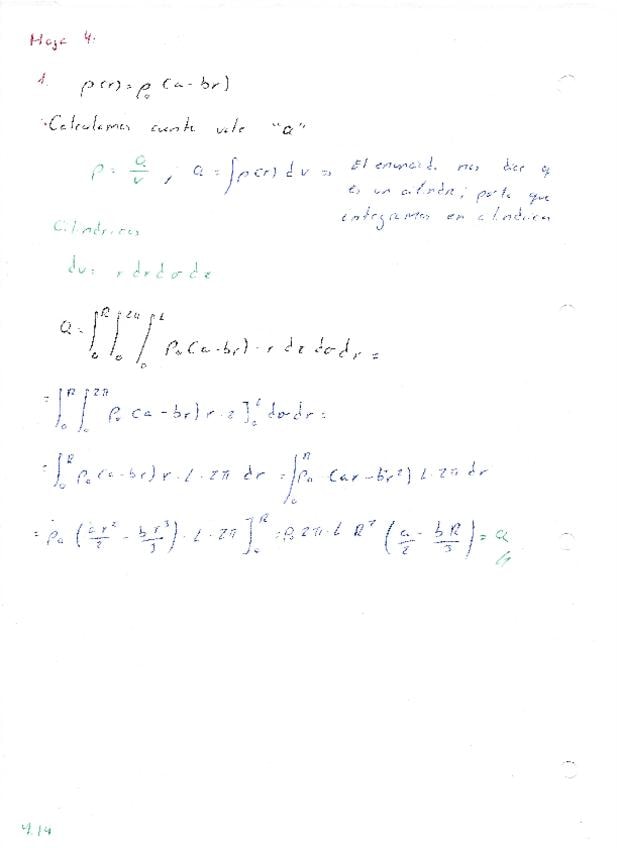 Hoja 4.
1. ρ(r) = ρ₀ (a - br)
· Calculamos cuanto vale "Q"
ρ = Q/V ; Q = ∫ρ(r) dv ⇒ El enunciado nos dice q
es un cilindro; por lo que
integramos en cilíndricas
Cilíndricas
dv = r dr dσ dz
Q = ∫₀ᴿ ∫₀²π ∫₀ᴸ ρ₀ (a - br) · r dz dσ dr =
= ∫₀ᴿ ∫₀²π ρ₀ (a - br) r · z ]₀ᴸ dσ dr =
= ∫₀ᴿ ρ₀ (a - br) r · L · 2π dr = ∫₀ᴿ ρ₀ (ar - br²) L · 2π dr
= ρ₀ (ar²/2 - br³/3) · L · 2π ]₀ᴿ = ρ₀ 2π · L R² (a/2 - bR/3) = Q
4.14